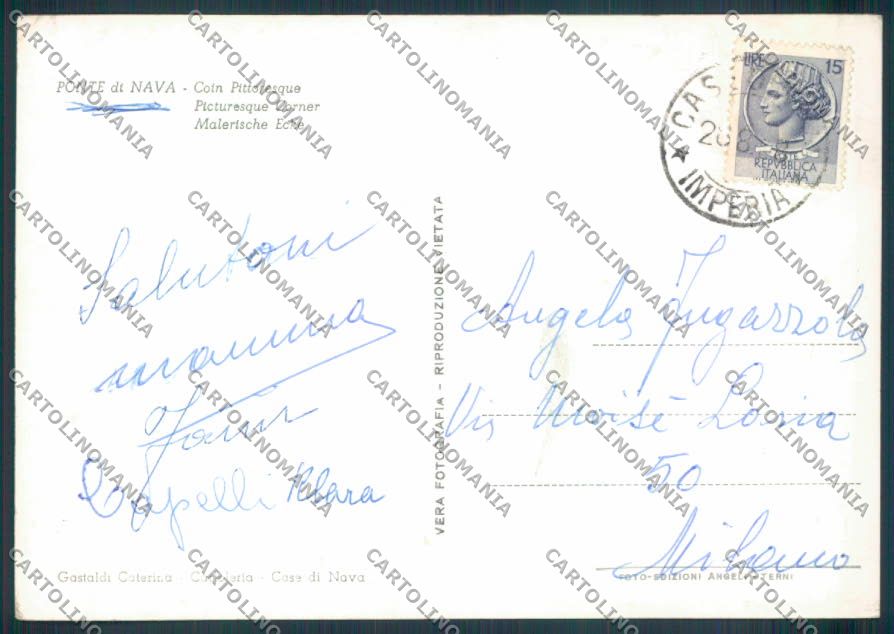 PONTE di NAVA - Coin Pittoresque
Picturesque Corner
Malerische Ecke
Salutoni
mamma
Capelli Klara
Gastaldi Caterina - Cartoleria - Case di Nava
VERA FOTOGRAFIA - RIPRODUZIONE VIETATA
LIRE 15
REPVBBLICA
ITALIANA
CAS
IMPERIA
Angela Fugazzola
Via Moisè Loria
50
Milano
FOTO-EDIZIONI ANGELI TERNI
CARTOLINOMANIA